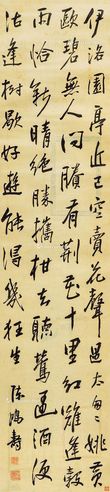 伊洛園亭近已空賣花聲過大匆匆姚黃
歐碧無人問賸有荊花十里紅雖逢穀
雨恰新晴絕勝攜柑去聽鶯逢酒便
沽逢樹歇好遊能得幾狂生
陳鴻壽